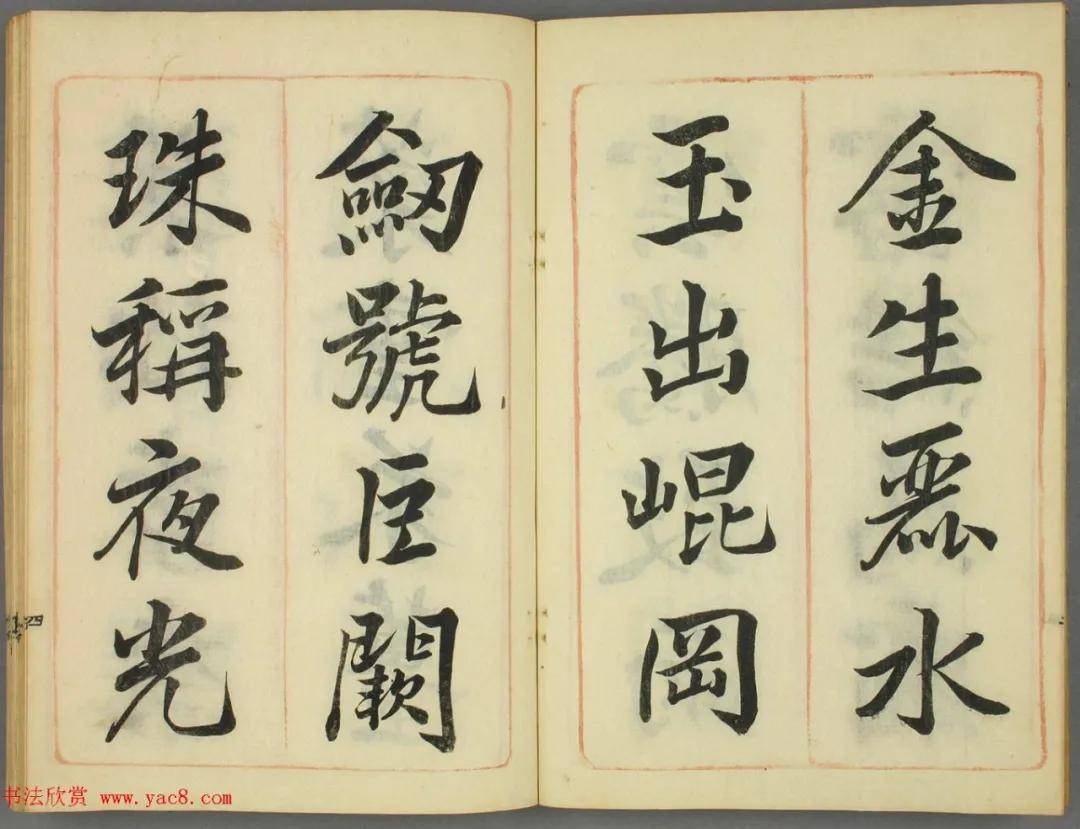 金生麗水
玉出崐岡
劒號巨闕
珠稱夜光
四
书法欣赏 www.yac8.com